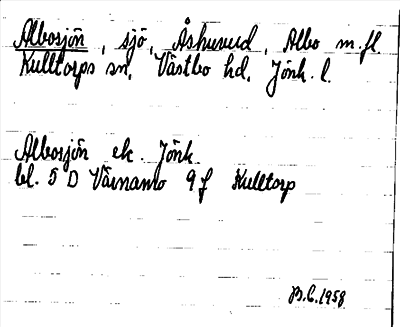 Albosjön, sjö, Åshuvud, Albo m.fl.
Kulltorps sn, Västbo hd, Jönk. l.
Albosjön ek. Jönk
bl. 5 D Värnamo 9 f Kulltorp
B.C. 1958